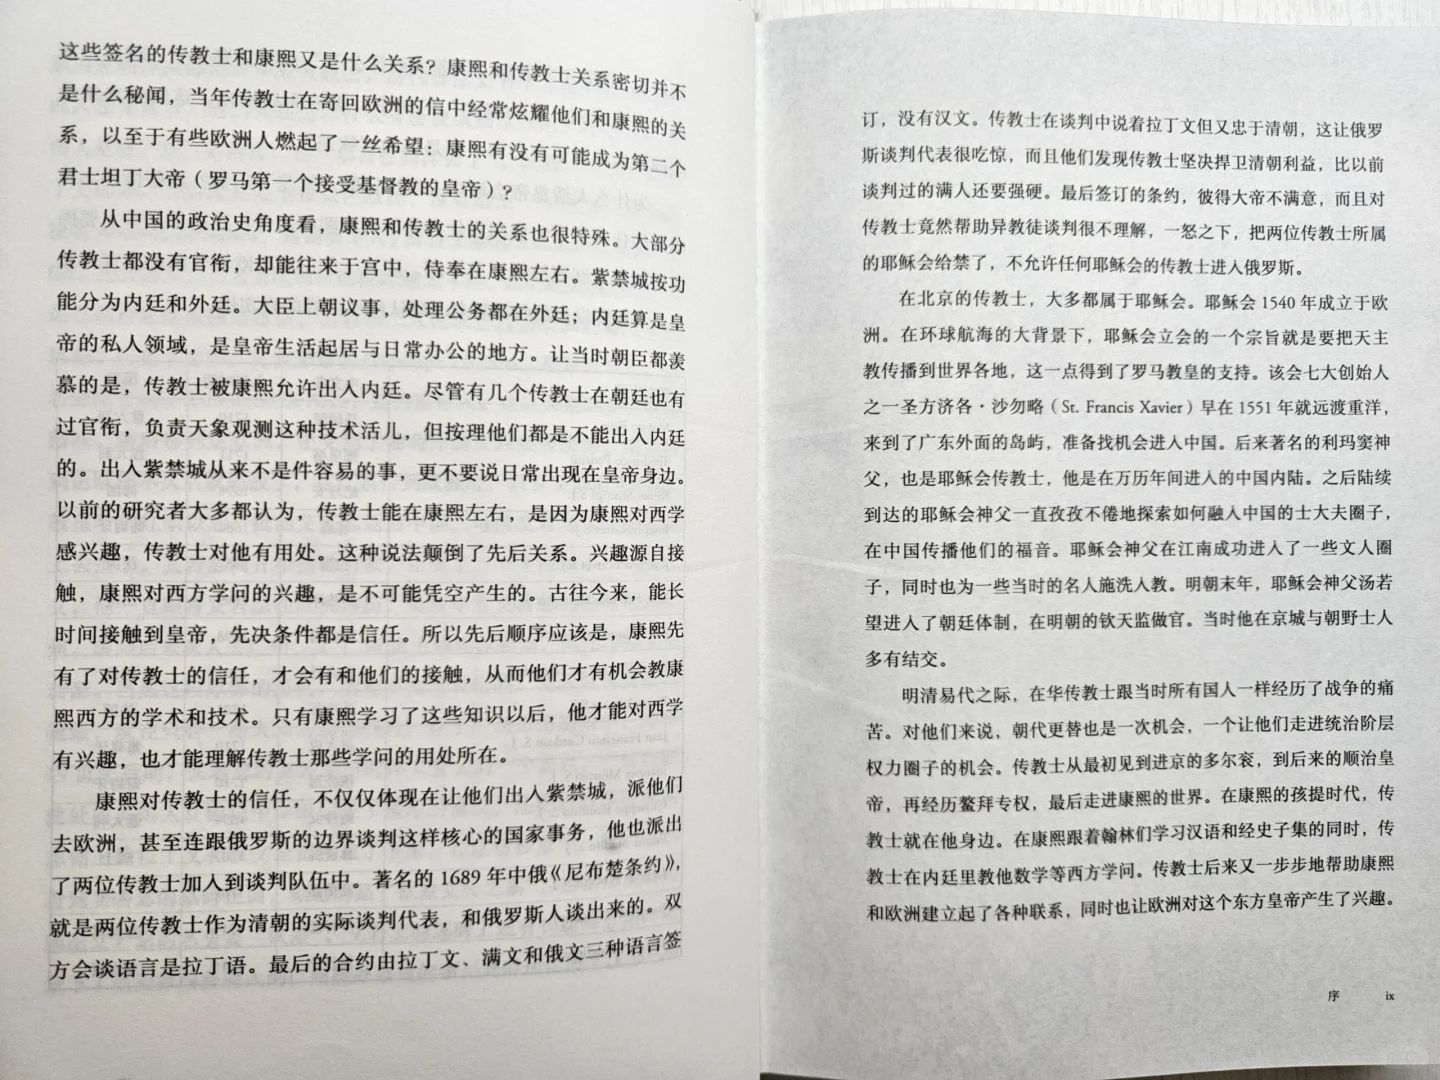 这些签名的传教士和康熙又是什么关系？康熙和传教士关系密切并不
是什么秘闻，当年传教士在寄回欧洲的信中经常炫耀他们和康熙的关
系，以至于有些欧洲人燃起了一丝希望：康熙有没有可能成为第二个
君士坦丁大帝（罗马第一个接受基督教的皇帝）？
从中国的政治史角度看，康熙和传教士的关系也很特殊。大部分
传教士都没有官衔，却能往来于宫中，侍奉在康熙左右。紫禁城按功
能分为内廷和外廷。大臣上朝议事，处理公务都在外廷；内廷算是皇
帝的私人领域，是皇帝生活起居与日常办公的地方。让当时朝臣都羡
慕的是，传教士被康熙允许出入内廷。尽管有几个传教士在朝廷也有
过官衔，负责天象观测这种技术活儿，但按理他们都是不能出入内廷
的。出入紫禁城从来不是件容易的事，更不要说日常出现在皇帝身边。
以前的研究者大多都认为，传教士能在康熙左右，是因为康熙对西学
感兴趣，传教士对他有用处。这种说法颠倒了先后关系。兴趣源自接
触，康熙对西方学问的兴趣，是不可能凭空产生的。古往今来，能长
时间接触到皇帝，先决条件都是信任。所以先后顺序应该是，康熙先
有了对传教士的信任，才会有和他们的接触，从而他们才有机会教康
熙西方的学术和技术。只有康熙学习了这些知识以后，他才能对西学
有兴趣，也才能理解传教士那些学问的用处所在。
康熙对传教士的信任，不仅仅体现在让他们出入紫禁城，派他们
去欧洲，甚至连跟俄罗斯的边界谈判这样核心的国家事务，他也派出
了两位传教士加入到谈判队伍中。著名的 1689 年中俄《尼布楚条约》，
就是两位传教士作为清朝的实际谈判代表，和俄罗斯人谈出来的。双
方会谈语言是拉丁语。最后的合约由拉丁文、满文和俄文三种语言签
订，没有汉文。传教士在谈判中说着拉丁文但又忠于清朝，这让俄罗
斯谈判代表很吃惊，而且他们发现传教士坚决捍卫清朝利益，比以前
谈判过的满人还要强硬。最后签订的条约，彼得大帝不满意，而且对
传教士竟然帮助异教徒谈判很不理解，一怒之下，把两位传教士所属
的耶稣会给禁了，不允许任何耶稣会的传教士进入俄罗斯。
在北京的传教士，大多都属于耶稣会。耶稣会 1540 年成立于欧
洲。在环球航海的大背景下，耶稣会立会的一个宗旨就是要把天主
教传播到世界各地，这一点得到了罗马教皇的支持。该会七大创始人
之一圣方济各·沙勿略（St. Francis Xavier）早在 1551 年就远渡重洋，
来到了广东外面的岛屿，准备找机会进入中国。后来著名的利玛窦神
父，也是耶稣会传教士，他是在万历年间进入的中国内陆。之后陆续
到达的耶稣会神父一直孜孜不倦地探索如何融入中国的士大夫圈子，
在中国传播他们的福音。耶稣会神父在江南成功进入了一些文人圈
子，同时也为一些当时的名人施洗入教。明朝末年，耶稣会神父汤若
望进入了朝廷体制，在明朝的钦天监做官。当时他在京城与朝野士人
多有结交。
明清易代之际，在华传教士跟当时所有国人一样经历了战争的痛
苦。对他们来说，朝代更替也是一次机会，一个让他们走进统治阶层
权力圈子的机会。传教士从最初见到进京的多尔衮，到后来的顺治皇
帝，再经历鳌拜专权，最后走进康熙的世界。在康熙的孩提时代，传
教士就在他身边。在康熙跟着翰林们学习汉语和经史子集的同时，传
教士在内廷里教他数学等西方学问。传教士后来又一步步地帮助康熙
和欧洲建立起了各种联系，同时也让欧洲对这个东方皇帝产生了兴趣。
序 ix